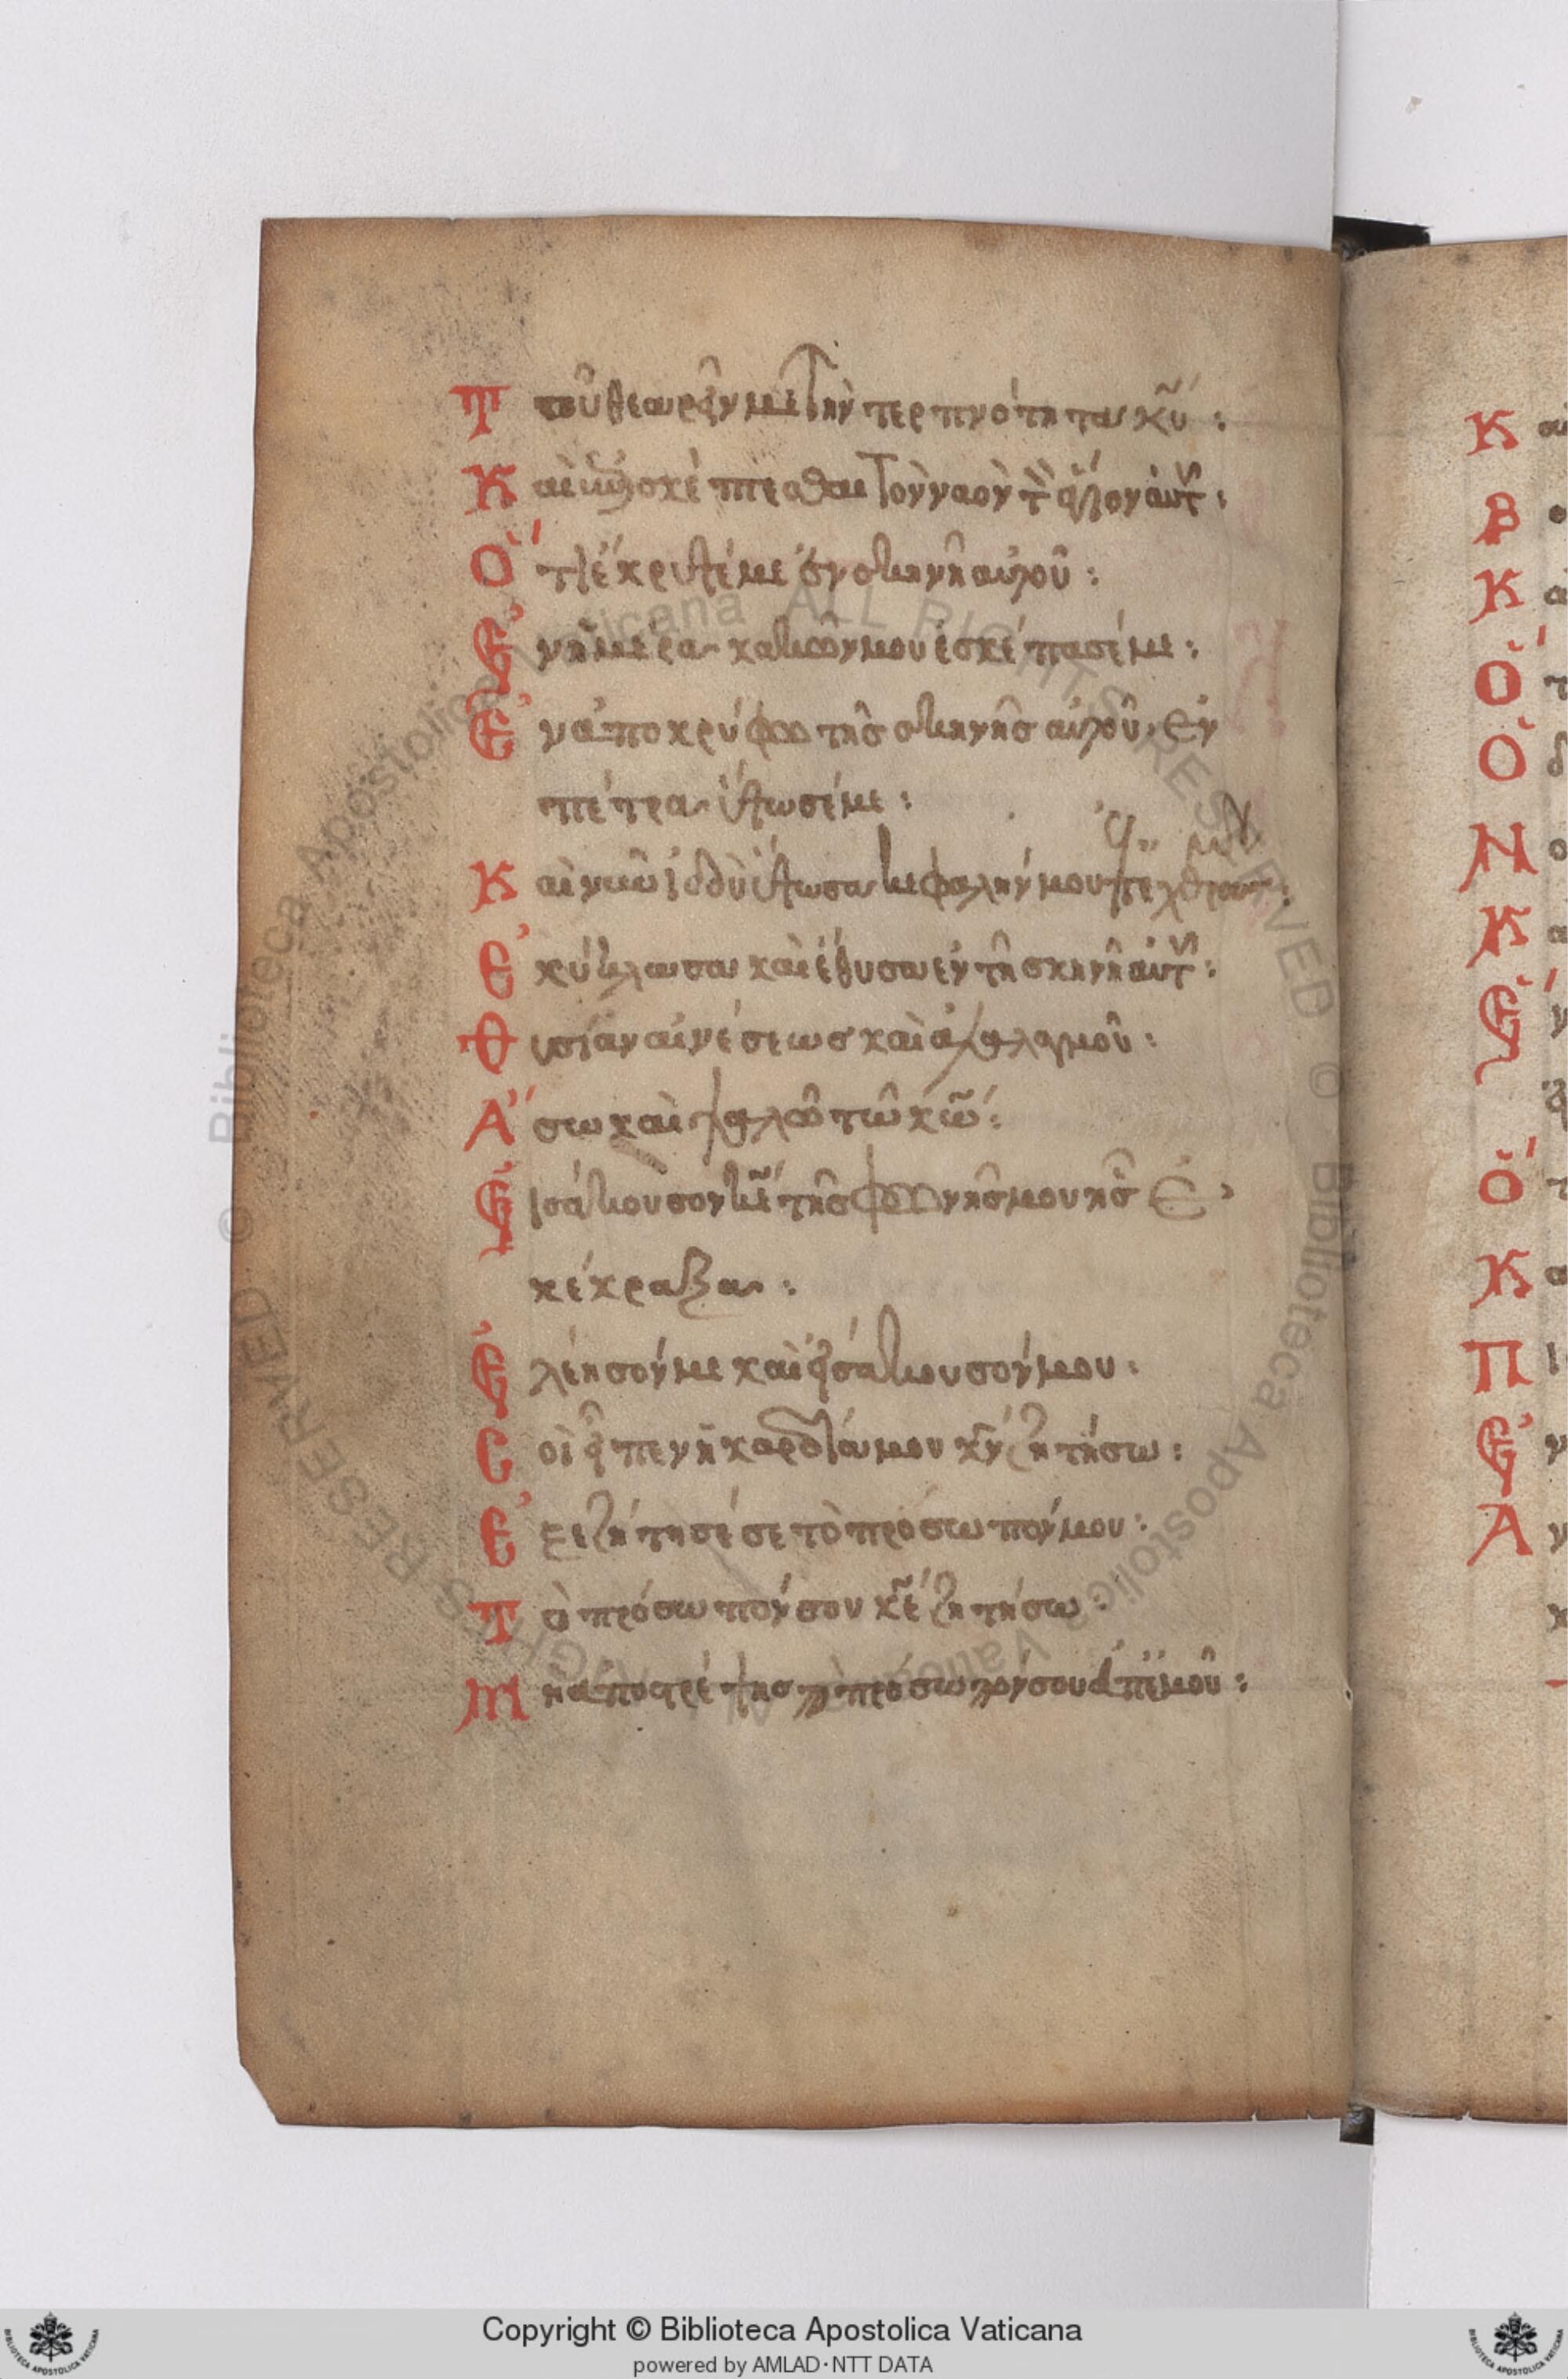 Τ τοῦ θεωρεῖν με την τερπνότητα κῦ :
Κ αὶ ἐπισκέπτεσθαι τὸν ναὸν τὸν ἅγιον αὐτ :
Ὅ τι ἔκρυψέ με ἐν σκηνῆ αὐτοῦ :
Ἐ ν ἡμέρα κακῶν μου ἐσκέπασέ με :
Ἐ ν ἀποκρύφω τῆς σκηνῆς αὐτοῦ, ἐν
πέτρα ὕψωσέ με :
Κ αὶ νῦν ἰδοὺ ὕψωσε κεφαλήν μου ἐπ ἐχθρους μου
Ἐ κύκλωσα καὶ ἔθυσα ἐν τῆ σκηνῆ αὐτ :
Θ υσίαν αἰνέσεως καὶ ἀλαλαγμοῦ :
Ἄ σω καὶ ψαλῶ τῶ κῶ :
Ε ἰσάκουσον κε τῆς φωνῆς μου ἧς ἐ
κέκραξα :
Ἐ λέησόν με καὶ εἰσάκουσόν μου :
C οὶ εἶπεν ἡ καρδία μου κν ζητήσω :
Ἐ ξεζήτησέ σε τὸ πρόσωπόν μου :
Τ ὸ πρόσωπόν σου κε ζητήσω :
Μ ὴ ἀποστρέψης τὸ πρόσωπόν σου ἀπ ἐμοῦ :
Κ
Β
Κ
Ὅ
Ὁ
Ν
Κ
Ἐ
Ὅ
Κ
Π
Ἐ
Α
Copyright © Biblioteca Apostolica Vaticana
powered by AMLAD・NTT DATA